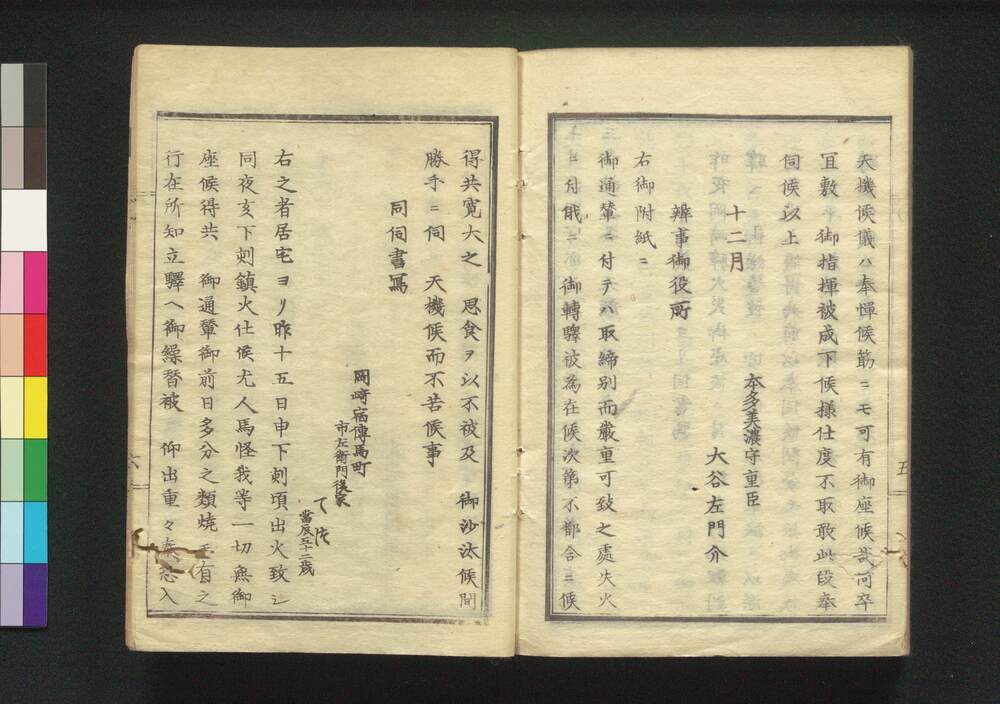 天機候儀ハ奉憚候筋ニモ可有御座候哉何卒
冝敷御指揮被成下候様仕度不取敢此段奉
伺候以上
十二月
本多美濃守重臣
大谷左門介
辨事御役所
右御附紙ニ
御通輦ニ付テハ取締別而嚴重可致之處失火
ニ付俄ニ御轉驛被為在候次第不都合ニ候
得共寛大之　思食ヲ以不被及　御沙汰候間
勝手ニ伺　天機候而不苦候事
同伺書寫
岡崎宿傳馬町
市左衛門後家
當辰五十二歳
右之者居宅ヨリ昨十五日申下刻頃出火致シ
同夜亥下刻鎮火仕候尤人馬怪我等一切無御
座候得共　御通輦御前日多分之類焼有之
行在所知立驛ヘ御繰替被　仰出重々恐入
五
六